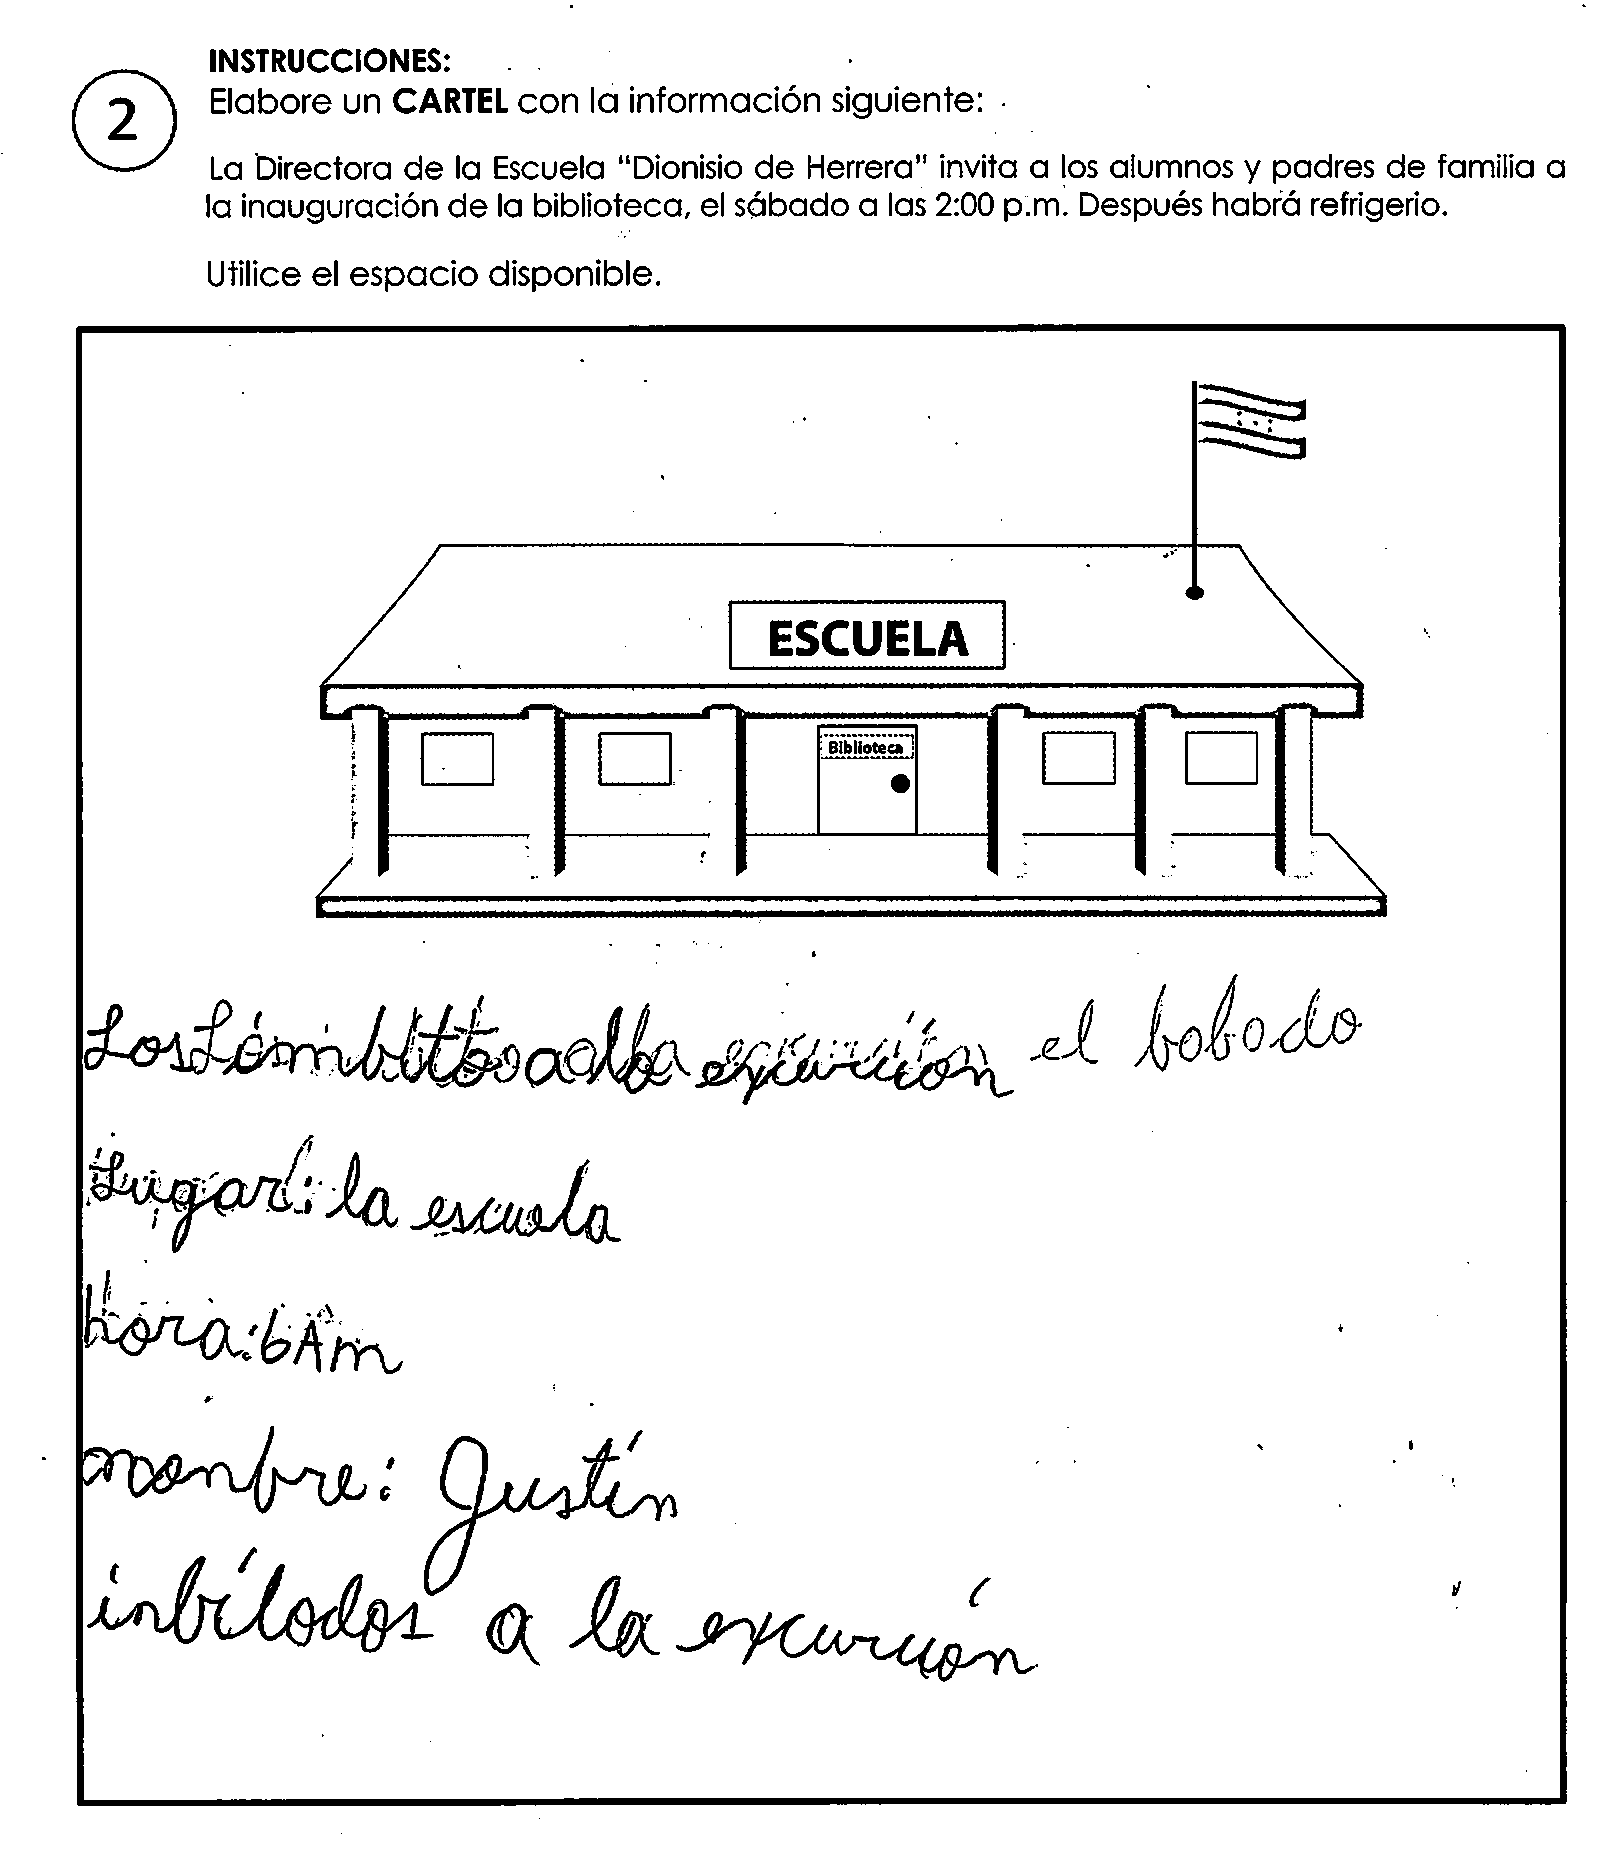 INSTRUCCIONES:
2
Elabore un CARTEL con la información siguiente:
La Directora de la Escuela "Dionisio de Herrera" invita a los alumnos y padres de familia a
la inauguración de la biblioteca, el sábado a las 2:00 p.m. Después habrá refrigerio.
Utilice el espacio disponible.
ESCUELA
Biblioteca
Los a la excurción el bobodo
Lugar: la escuela
hora: 6Am
nonbre: Justín
a la excurción